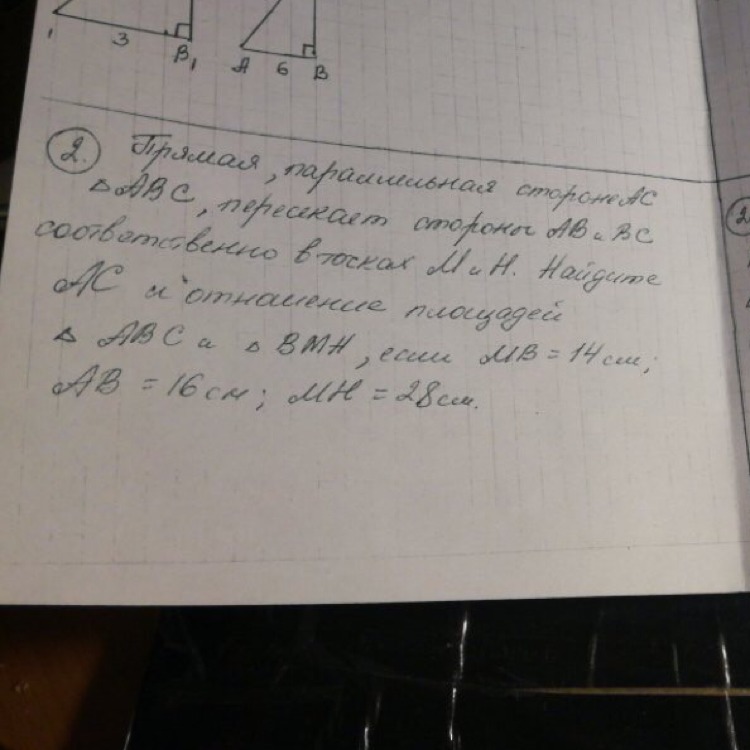 1 3 B₁ A 6 B
2. Прямая, параллельная стороне AC
△ABC, пересекает стороны AB и BC
соответственно в точках M и H. Найдите
AC и отношение площадей
△ ABC и △ BMH, если MB = 14 см;
AB = 16 см; MH = 28 см.
2